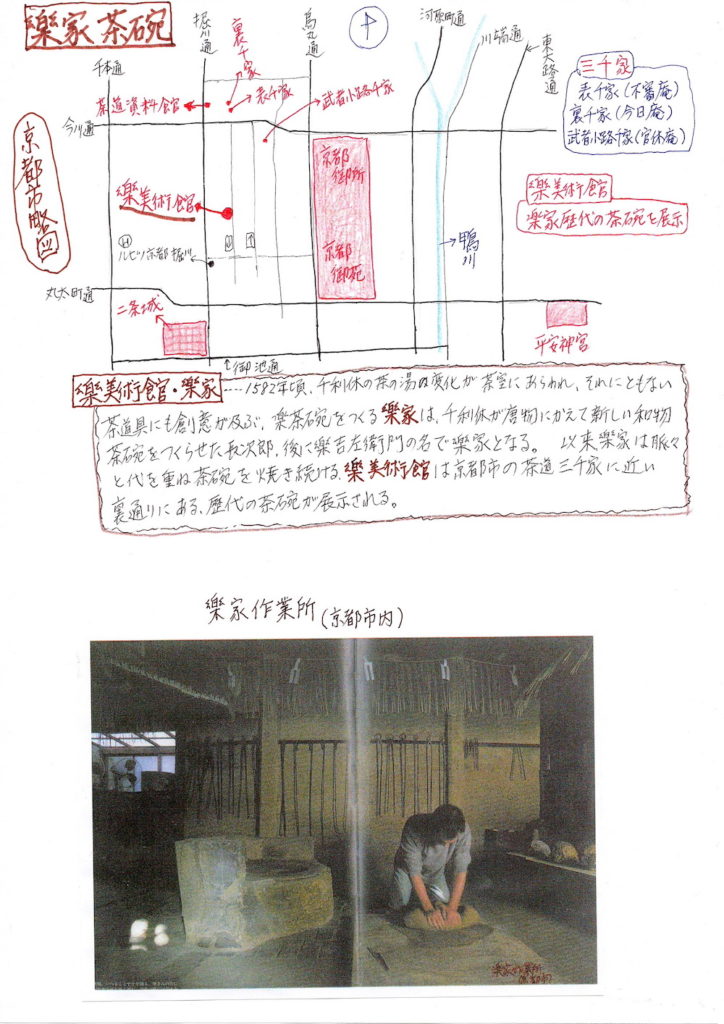 樂家 茶碗
千本通
堀川通
裏千家
烏丸通
河原町通
川端通
東大路通
茶道資料館
表千家
武者小路千家
今川通
三千家
表千家(不審庵)
裏千家(今日庵)
武者小路千家(官休庵)
京都市略図
京都
御所
樂美術館
樂美術館
楽家歴代の茶碗を展示
H
ルビノ京都堀川
京都
御苑
鴨川
丸太町通
二条城
平安神宮
御池通
樂美術館・楽家‥‥1582年頃、千利休の茶の湯の変化が茶室にあらわれ、それにともない
茶道具にも創意が及ぶ、楽茶碗をつくる樂家は、千利休が唐物にかえて新しい和物
茶碗をつくらせた長次郎、後に樂吉左衛門の名で楽家となる。 以来楽家は脈々
と代を重ね茶碗を焼き続ける、樂美術館は京都市の茶道三千家に近い
裏通りにある、歴代の茶碗が展示される。
樂家作業所(京都市内)
楽家作業所